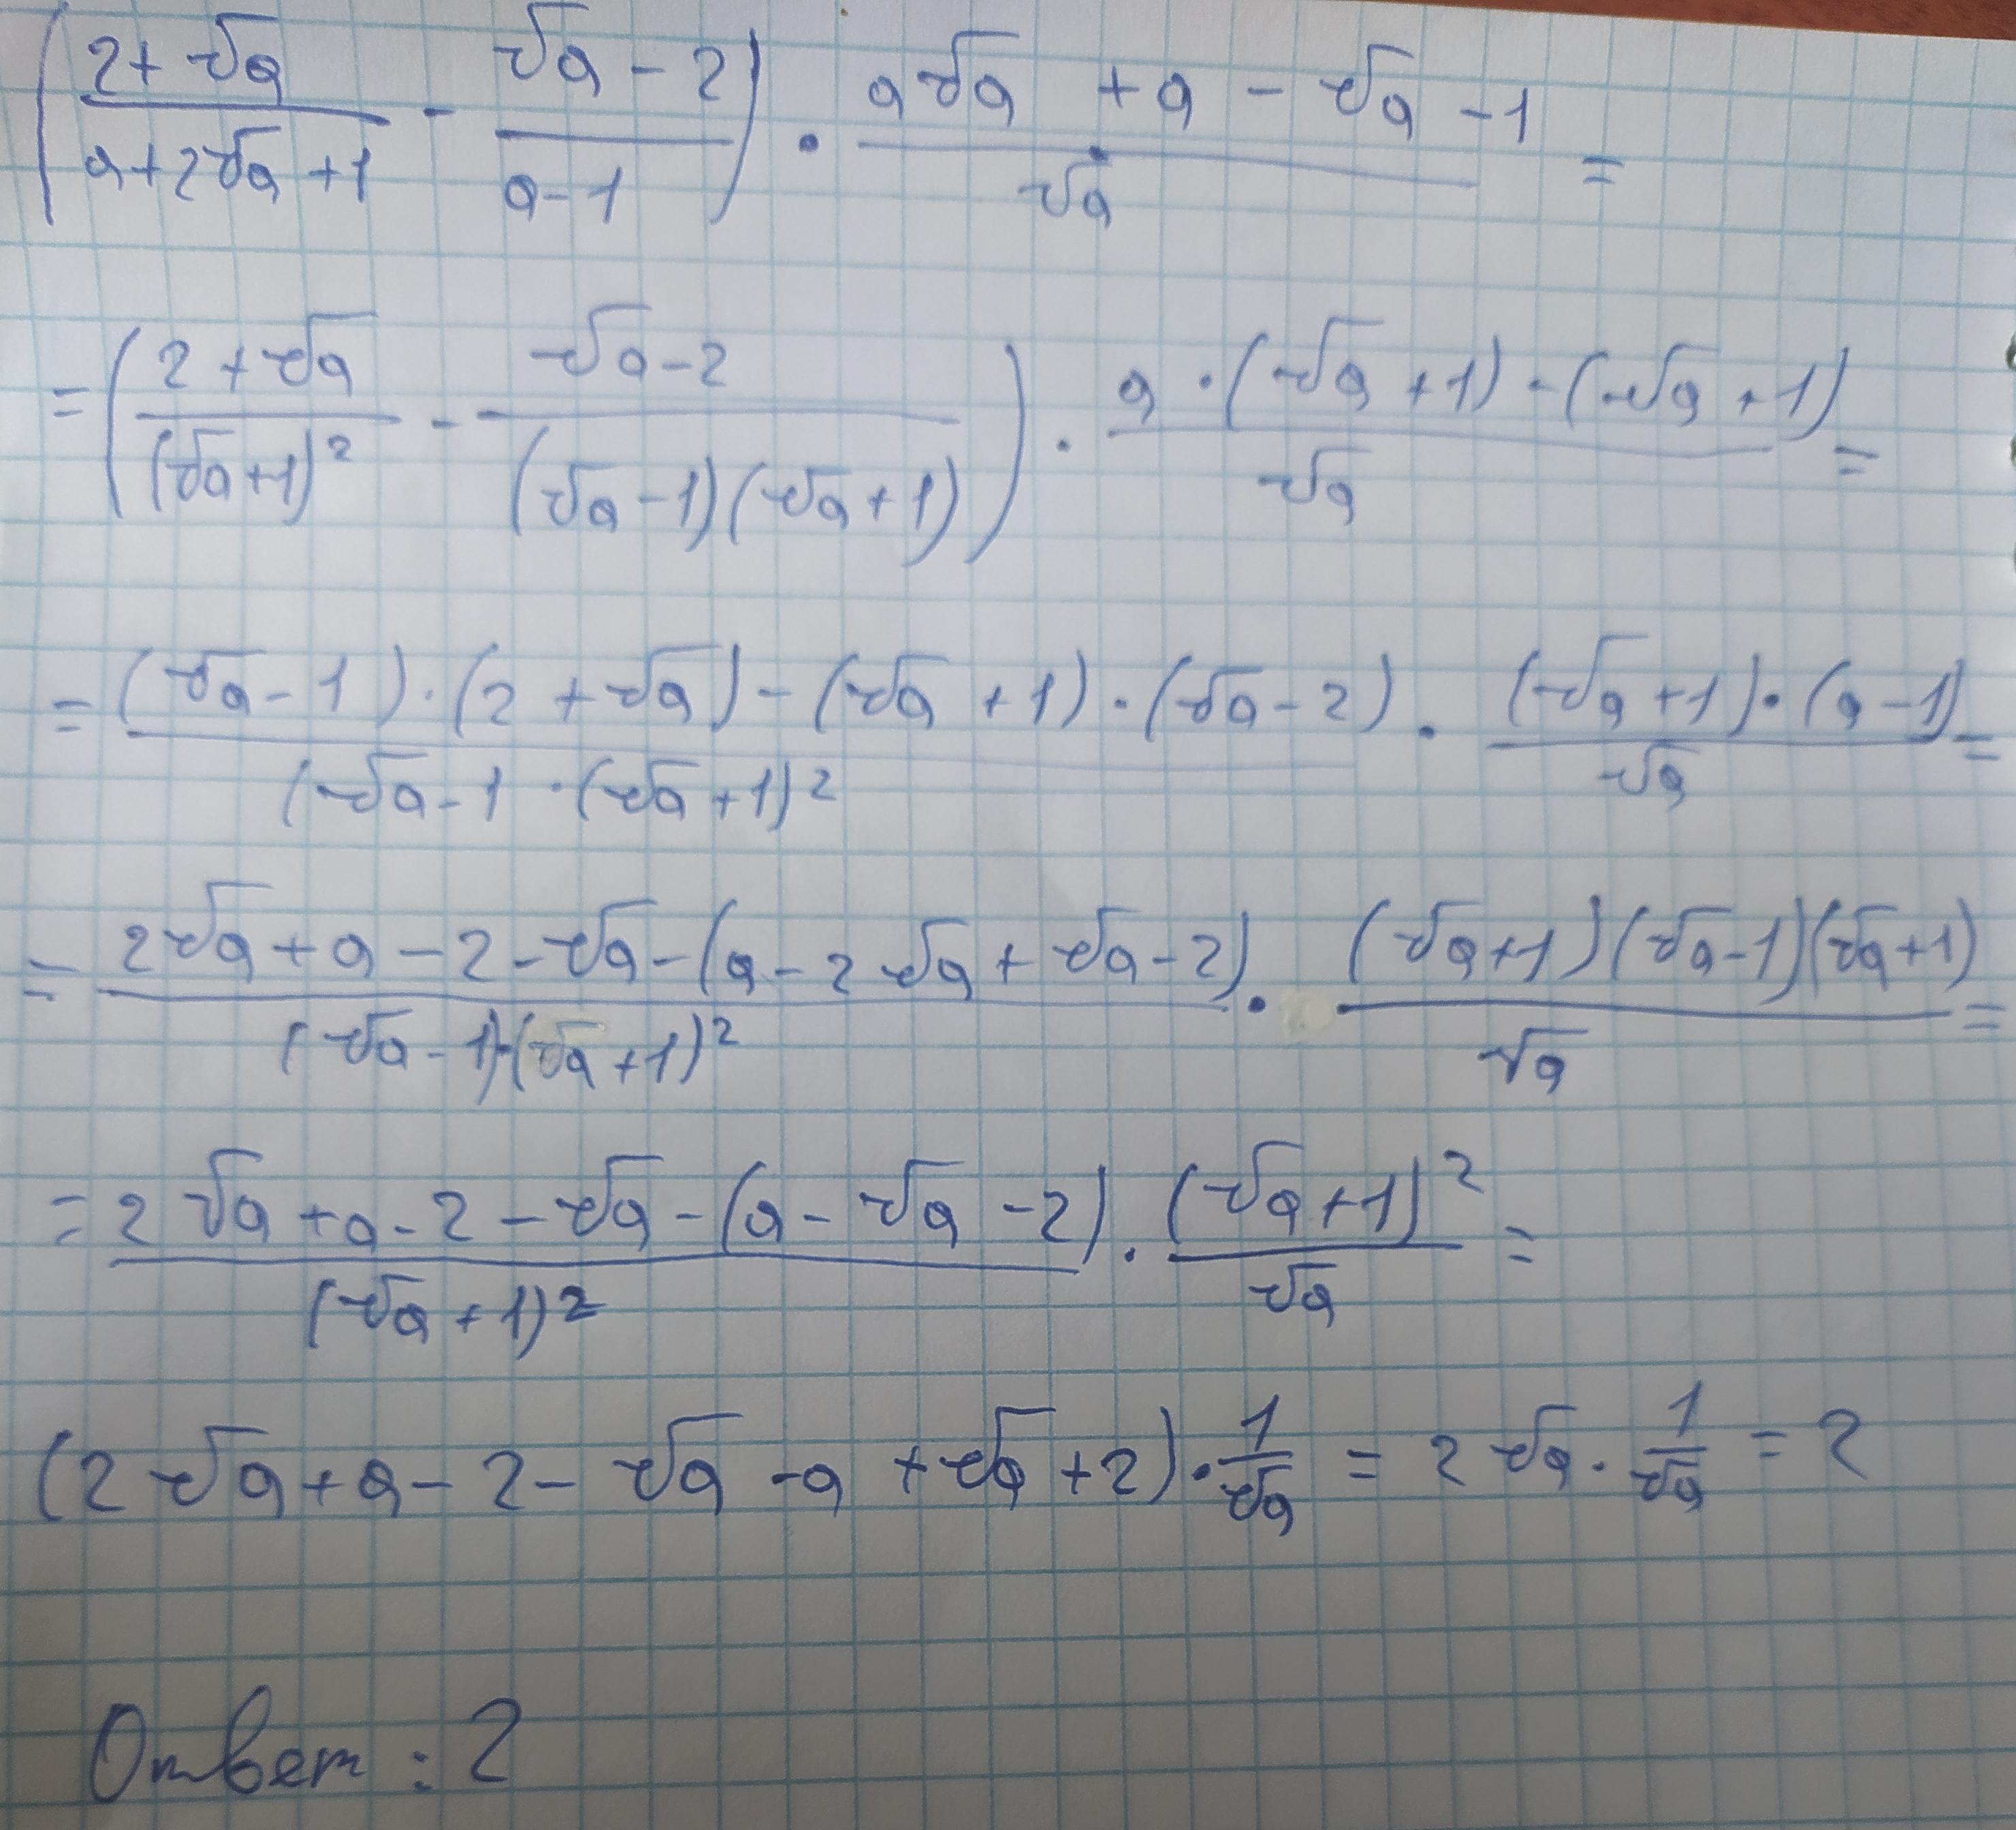 (2+√a/a+2√a+1 - √a-2/a-1) · a√a+a-√a-1/√a =
= (2+√a/(√a+1)² - √a-2/(√a-1)(√a+1)) · a·(√a+1)-(√a+1)/√a =
= (√a-1)·(2+√a)-(√a+1)·(√a-2)/(√a-1·(√a+1)² · (√a+1)·(a-1)/√a =
= 2√a+a-2-√a-(a-2√a+√a-2)/(√a-1)·(√a+1)² · (√a+1)(√a-1)(√a+1)/√a =
= 2√a+a-2-√a-(a-√a-2)/(√a+1)² · (√a+1)²/√a =
(2√a+a-2-√a-a+√a+2)·1/√a = 2√a·1/√a = 2
Ответ: 2